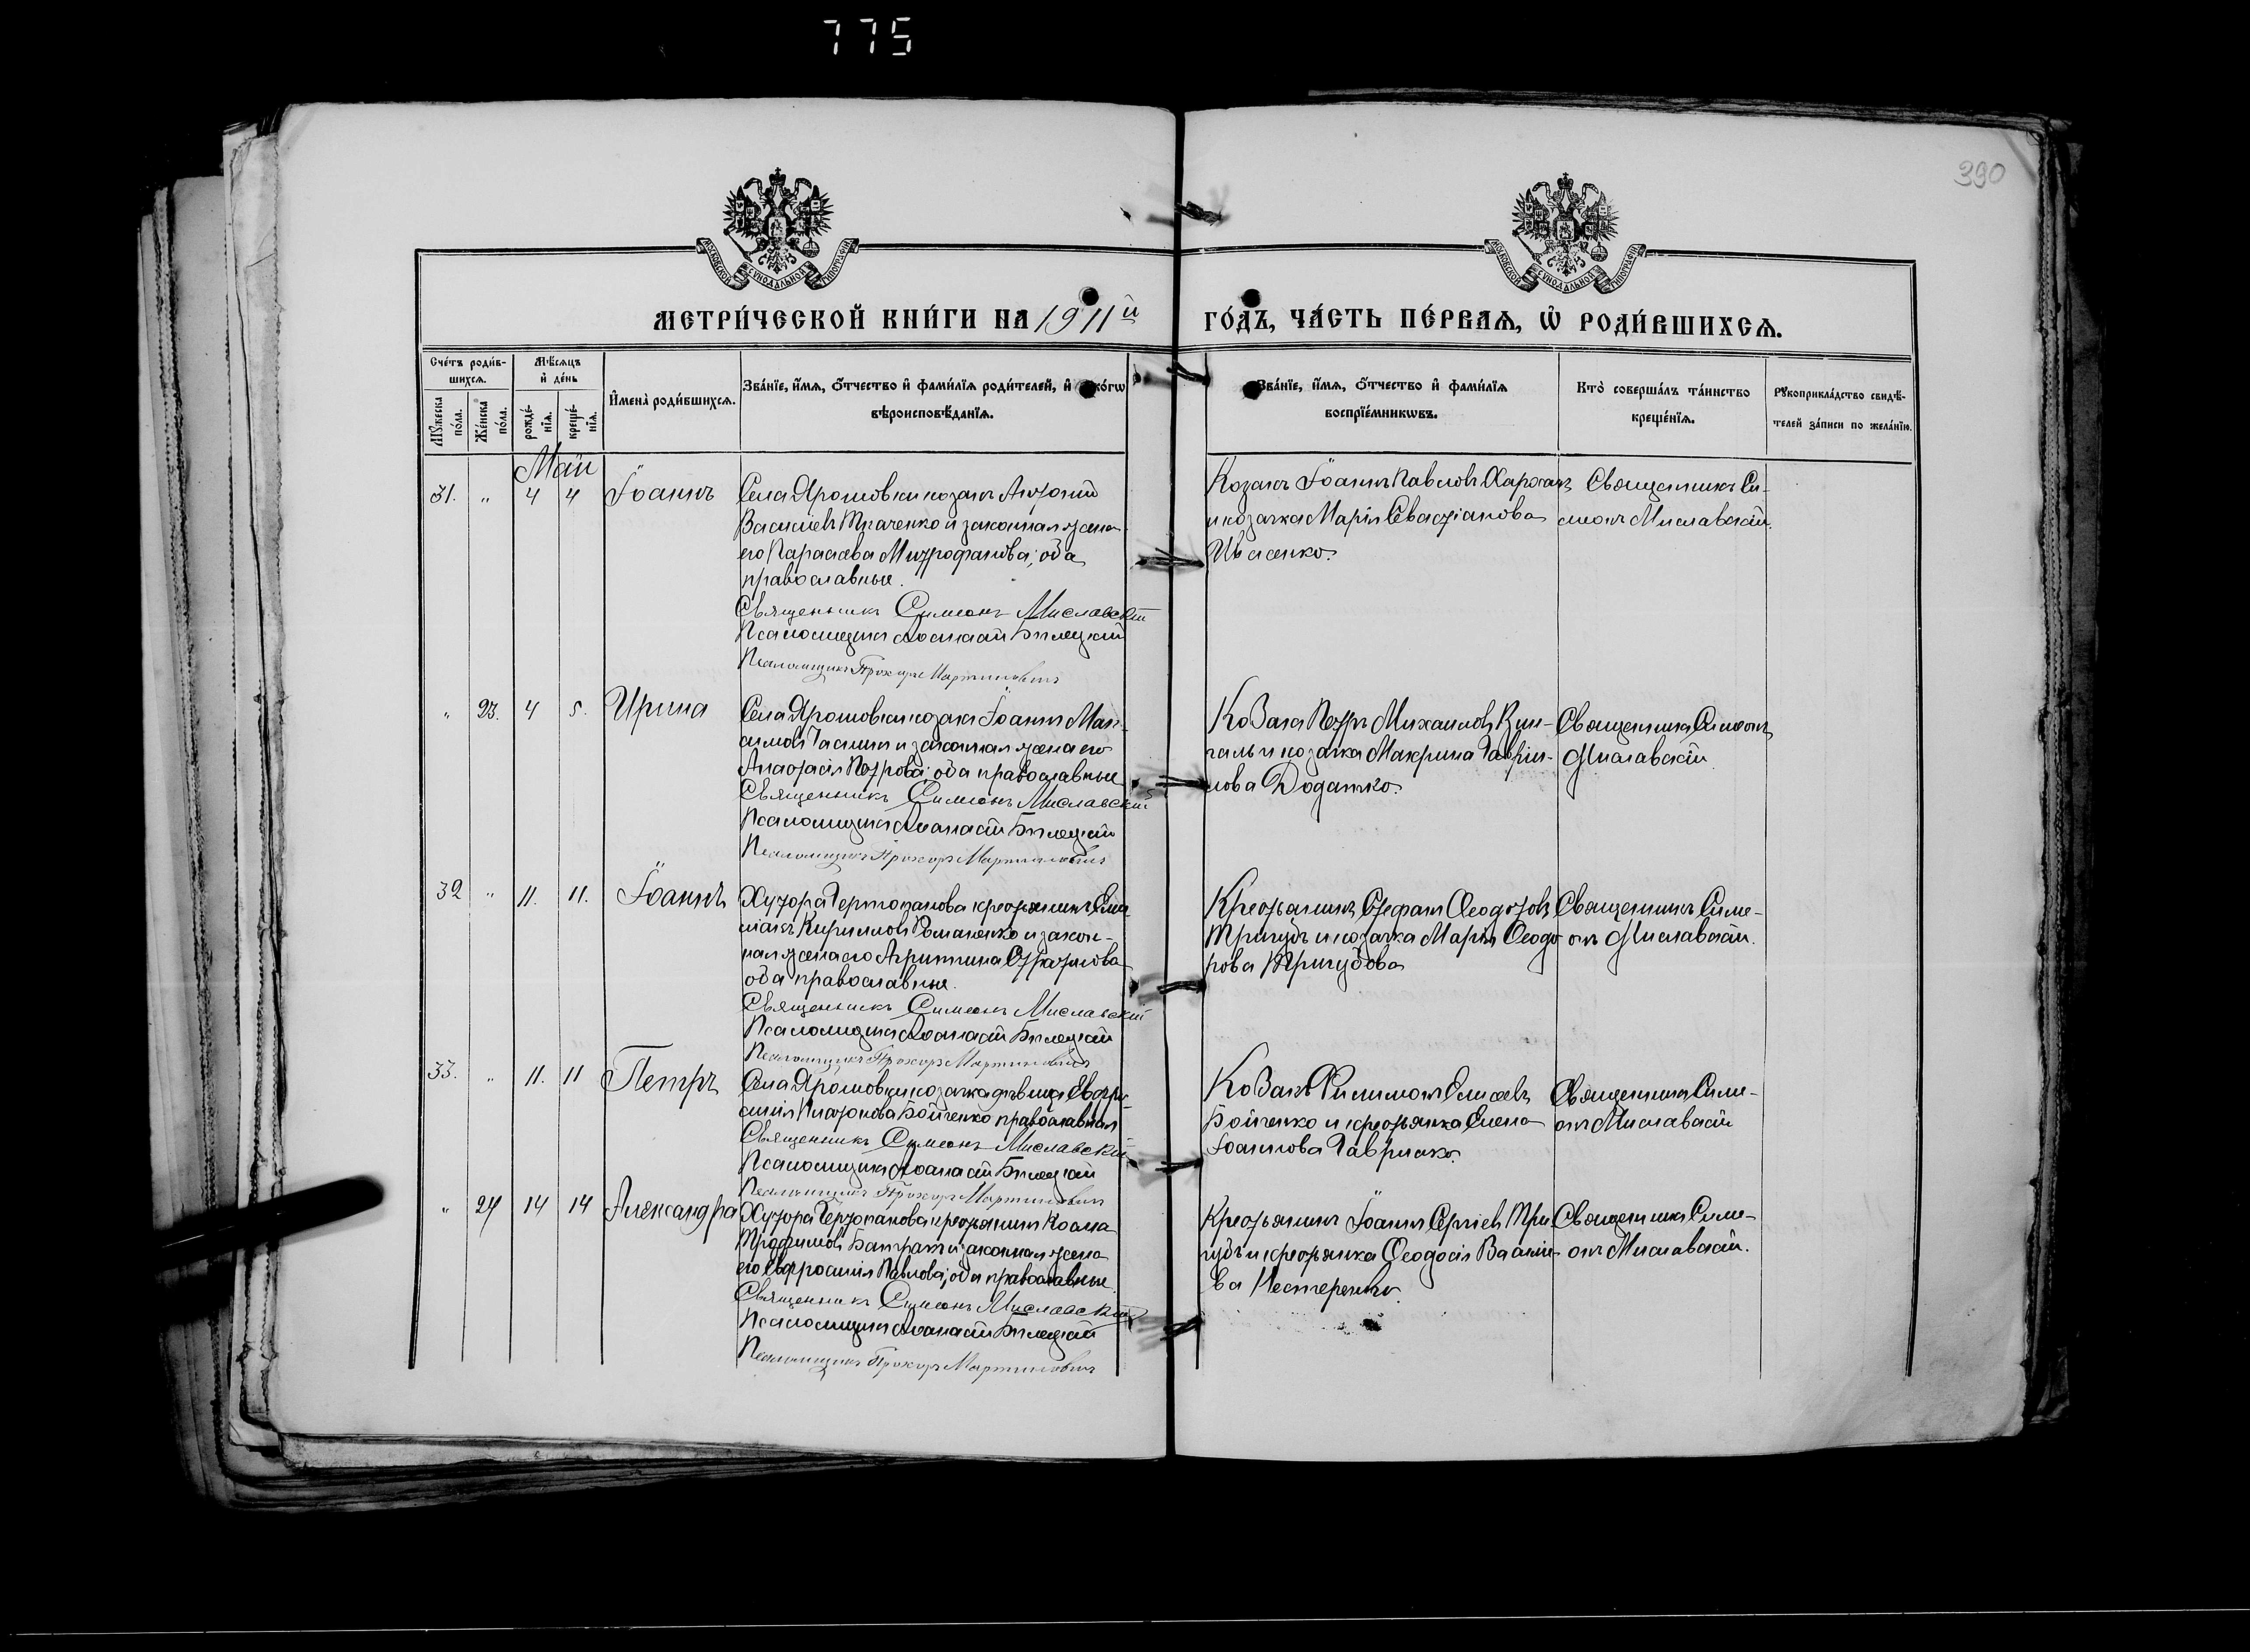 775
390
МОСКОВСКОЙ СУНОДАЛЬНОЙ ТИПОГРАФІИ
МОСКОВСКОЙ СУНОДАЛЬНОЙ ТИПОГРАФІИ
МЕТРИ́ЧЕСКОЙ КНИ́ГИ НА 1911й ГО́ДЪ, ЧА́СТЬ ПЕ́РВАЯ, Ѡ РОДИ́ВШИХСЯ.
Сче́тъ роди́в-
шихся.
Мѣ́сяцъ
и де́нь
Мꙋ́жеска по́ла.
Же́нска по́ла.
рожде́-
нїя.
креще́-
нїя.
Имена̀ роди́вшихся.
Зва́нїе, и́мя, о́тчество и фами́лїя роди́телей, и
вѣроисповѣ́данїя.
Зва́нїе, и́мя, о́тчество и фами́лїя
воспрїе́мникѡвъ.
Кто̀ соверша́лъ та́инство
креще́нїя.
Рꙋкоприкла́дство свидѣ́-
телей за́писи по жела́нїю.
Май
31. " 4 4 Іоаннъ
Села Ярошовки козакъ Антоній
Васильевъ Ткаченко и законная жена
его Параскева Митрофанова, оба
православные.
Священникъ Симеонъ Миславскій
Псаломщикъ Аѳанасій Билецкій
Псаломщикъ Прохоръ Мартиновичъ
Козакъ Іоаннъ Павловъ
и козачка Марія Севастіанова
Священникъ Си-
меонъ Миславскій.
" 23. 4 5. Ирина
Села Ярошовки козакъ Іоаннъ Мак-
симовъ и законная жена его
Анастасія Петрова; оба православные
Священникъ Симеонъ Миславскій
Псаломщикъ Аѳанасій Билецкій
Псаломщикъ Прохоръ Мартиновичъ
Козакъ Петръ Михаиловъ
и козачка Макрина Гаврии-
лова Додатко.
Священникъ Симеонъ
Миславскій
32 " 11. 11. Іоаннъ
Хутора крестьянинъ
Кирилловъ Романенко и закон-
ная жена его Агриппина
оба православные.
Священникъ Симеонъ Миславскій
Псаломщикъ Аѳанасій Билецкій
Псаломщикъ Прохоръ Мартиновичъ
Крестьянинъ Стефанъ Ѳеодотовъ
Тригубъ и козачка Марія Ѳеодо-
рова Тригубова
Священникъ Симе-
онъ Миславскій.
33. " 11. 11 Петръ
Села Ярошовки козачка дѣвица Евфро-
синія Бойченко православная
Священникъ Симеонъ Миславскій
Псаломщикъ Аѳанасій Билецкій
Псаломщикъ Прохоръ Мартиновичъ
Козакъ Филимонъ Елисеевъ
Бойченко и крестьянка Елена
Іоаннова Гавриленко.
Священникъ Симе-
онъ Миславскій
" 24 14 14 Александра
Хутора крестьянинъ Косма
Трофимовъ и законная жена
его Евфросинія Павлова; оба православные.
Священникъ Симеонъ Миславскій
Псаломщикъ Аѳанасій Билецкій
Псаломщикъ Прохоръ Мартиновичъ
Крестьянинъ Іоаннъ Сергіевъ Три-
губъ и крестьянка Ѳеодосія Василіе-
ва Нестеренко.
Священникъ Симе-
онъ Миславскій.